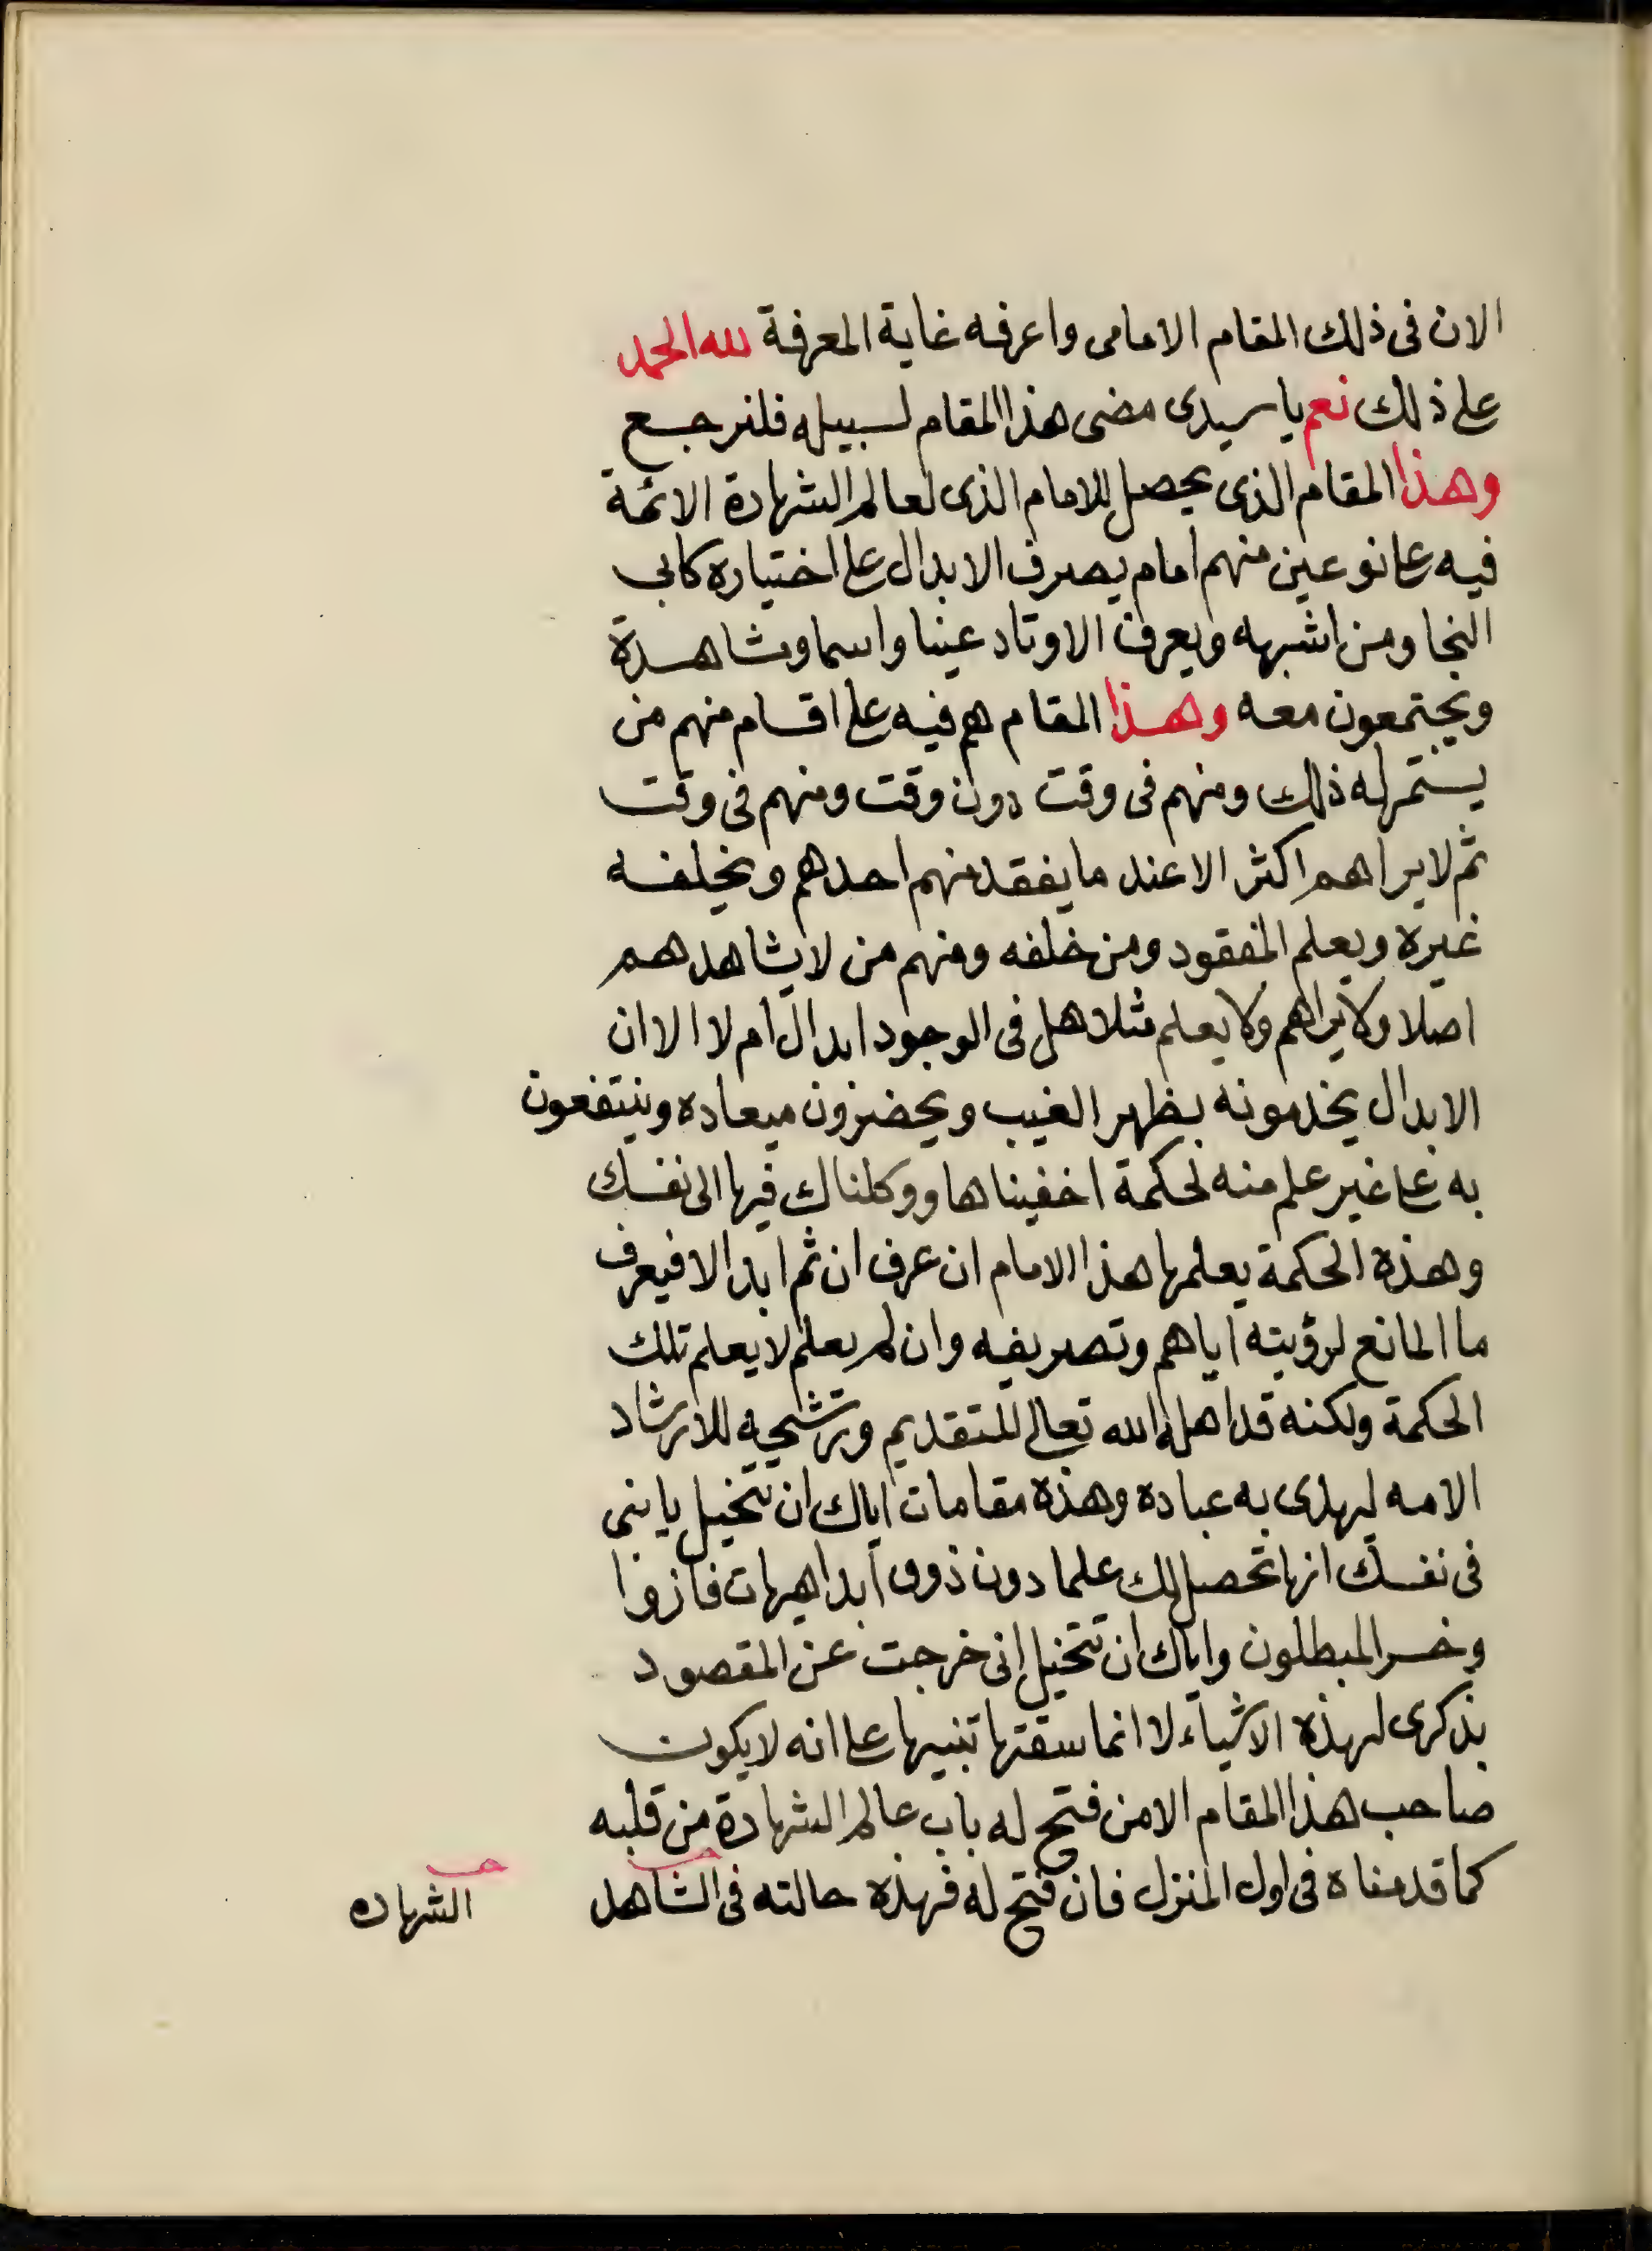 الان فى ذلك المقام الامامى واعرفه غاية المعرفة لله الحمد
على ذلك نعم ياسيدى مضى هذا المقام لسبيله فلنرجع
وهذا المقام الذى يحصل للامام الذى لعالم الشهادة الائمة
فيه على نوعين منهم امام يصرف الابدال على اختياره كابى
النجا ومن اشبهه ويعرف الاوتاد عينا واسما ومشاهدة
ويجتمعون معه وهذا المقام هم فيه على اقسام منهم من
يستمر له ذلك ومنهم فى وقت دون وقت ومنهم فى وقت
ثم لا يراهم اكثر الا عند ما يفقد منهم احدهم ويخلفه
غيره ويعلم المفقود ومن خلفه ومنهم من لا يشاهدهم
اصلا ولا يراهم ولا يعلم مثلا هل فى الوجود ابدال ام لا الا ان
الابدال يخدمونه بظهر الغيب ويحضرون ميعاده وينتفعون
به على غير علم منه لحكمة اخفيناها ووكلناك فيها الى نفسك
وهذه الحكمة يعلمها هذا الامام ان عرف ان ثم ابدالا فيعرف
ما المانع لرؤيته اياهم وتصريفه وان لم يعلم لا يعلم تلك
الحكمة ولكنه قد اهله الله تعالى للتقديم وترشحيه للارشاد
الامه ليهدى به عباده وهذه مقامات اياك ان تتخيل يا بنى
فى نفسك انها تحصل لك علما دون ذوق ابدا هيهات فازوا
وخسر المبطلون واياك ان تتخيل انى خرجت عن المقصود
بذكرى لهذه الاشياء لا انما سقتها تنبيها على انه لا يكون
صاحب هذا المقام الا من فتح له باب عالم الشهادة من قلبه
كما قدمناه فى اول المنزل فان فتح له فهذه حالته فى الشاهد
الشهاده